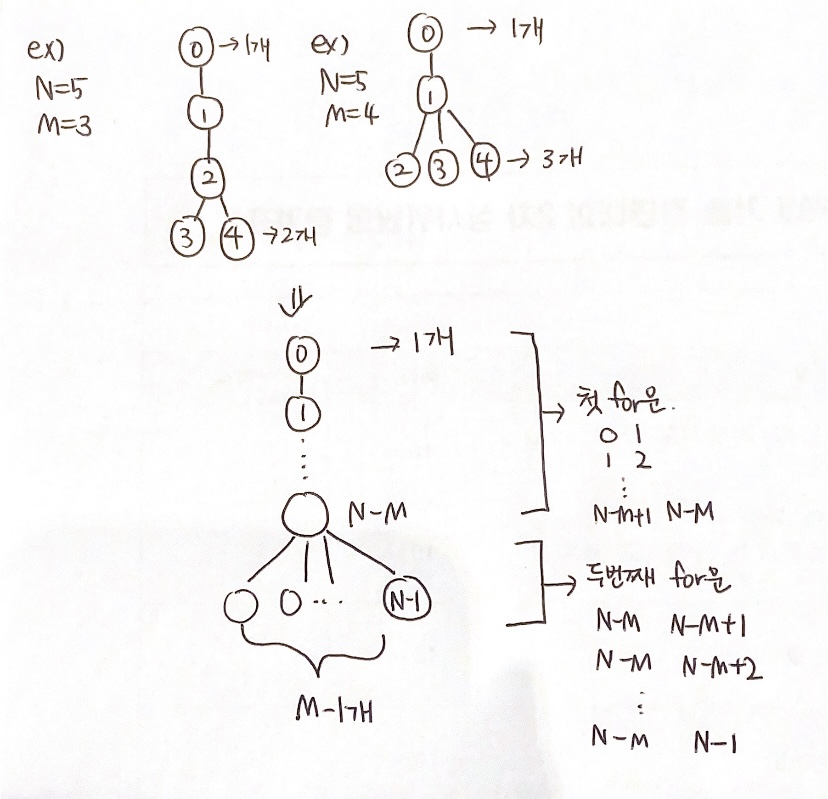 ex)
N=5
M=3
0 → 1개
1
2
3 4 → 2개
ex)
N=5
M=4
0 → 1개
1
2 3 4 → 3개
⇓
0 → 1개
1
⋮
N-M
... N-1
M-1개
→ 첫 for문.
0 1
1 2
⋮
N-M+1 N-M
→ 두번째 for문
N-M N-M+1
N-M N-M+2
⋮
N-M N-1